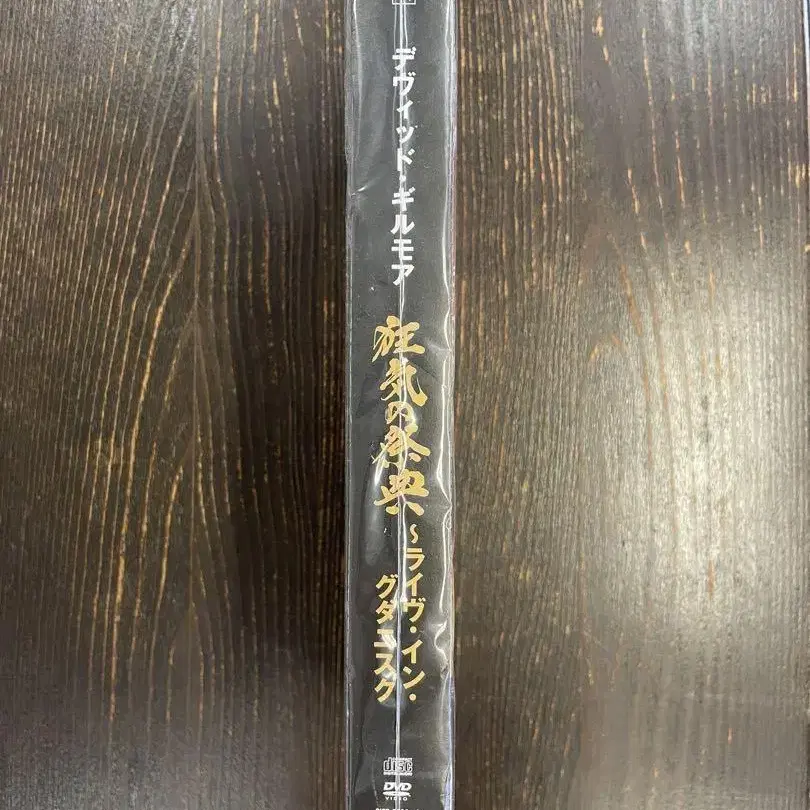 デヴィッド・ギルモア
狂気の祭典
～ライヴ・イン・
グダニスク
DISC
DVD
VIDEO